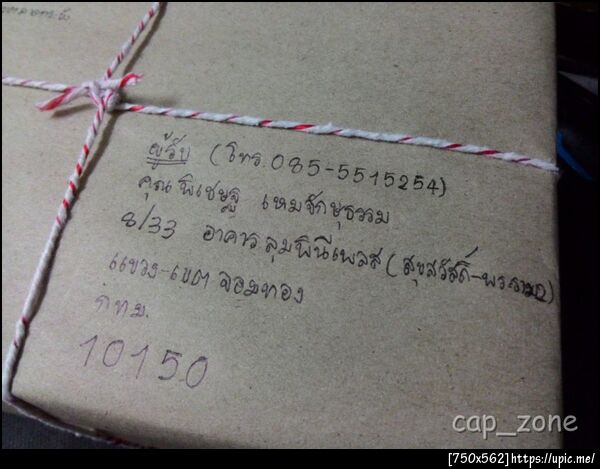 ผู้รับ (โทร. 085-5515254)
คุณ พิเชษฐ เหมจักษุธรรม
8/33 อาคาร ลุมพินีเพลส (สุขสวัสดิ์-พระราม2)
แขวง-เขต จอมทอง
กทม.
10150
cap_zone
[750x562]https://upic.me/